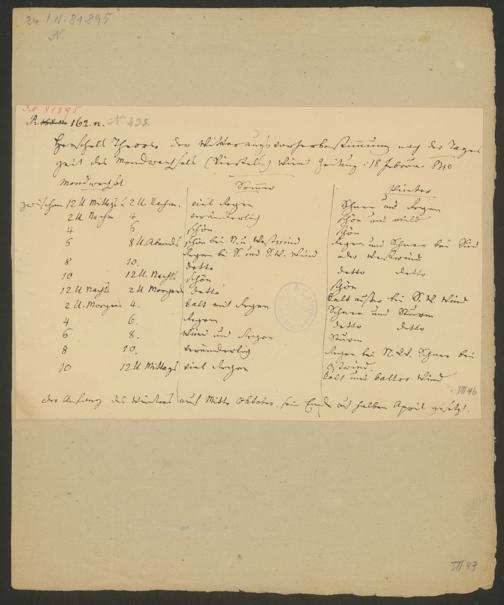 Zu I.N. 81.895
N.
I.N. 81895
R. 162.n. N 438.
Herschels Theorie der Witterungsvorherbestimmung nach der Tages
zeit des Mondwechsels (Viertels) Wien Zeitung 18 Februar
Mondwechsel Sommer Winter
zwischen 12 U Mittags 2 U Nachm. viel Regen Schnee und Regen
2 U Nachm 4. veränderlich schön und mild
4 6 schön schön
6 8 U Abends schön bei N. u Westwind Regen und Schnee bei Süd
8 10. Regen bei S. und S.W. Wind oder Westwind
10 12 U Nachts detto detto detto
12 U Nachts 2 U Morgens schön schön
2 U Morgens 4. kalt mit Regen kalt außer bei S.W. Wind
4 6. Regen Schnee und Sturm
6 8. Wind und Regen detto detto
8 10. veränderlich Sturm
10 12 U Mittags viel Regen Regen bei N.W. Schnee bei
Ostwind.
kalt und kalter Wind
VII 46
der Anfang des Winters auf Mitte Oktober, sein Ende auf halben April gesetzt.
VII 47